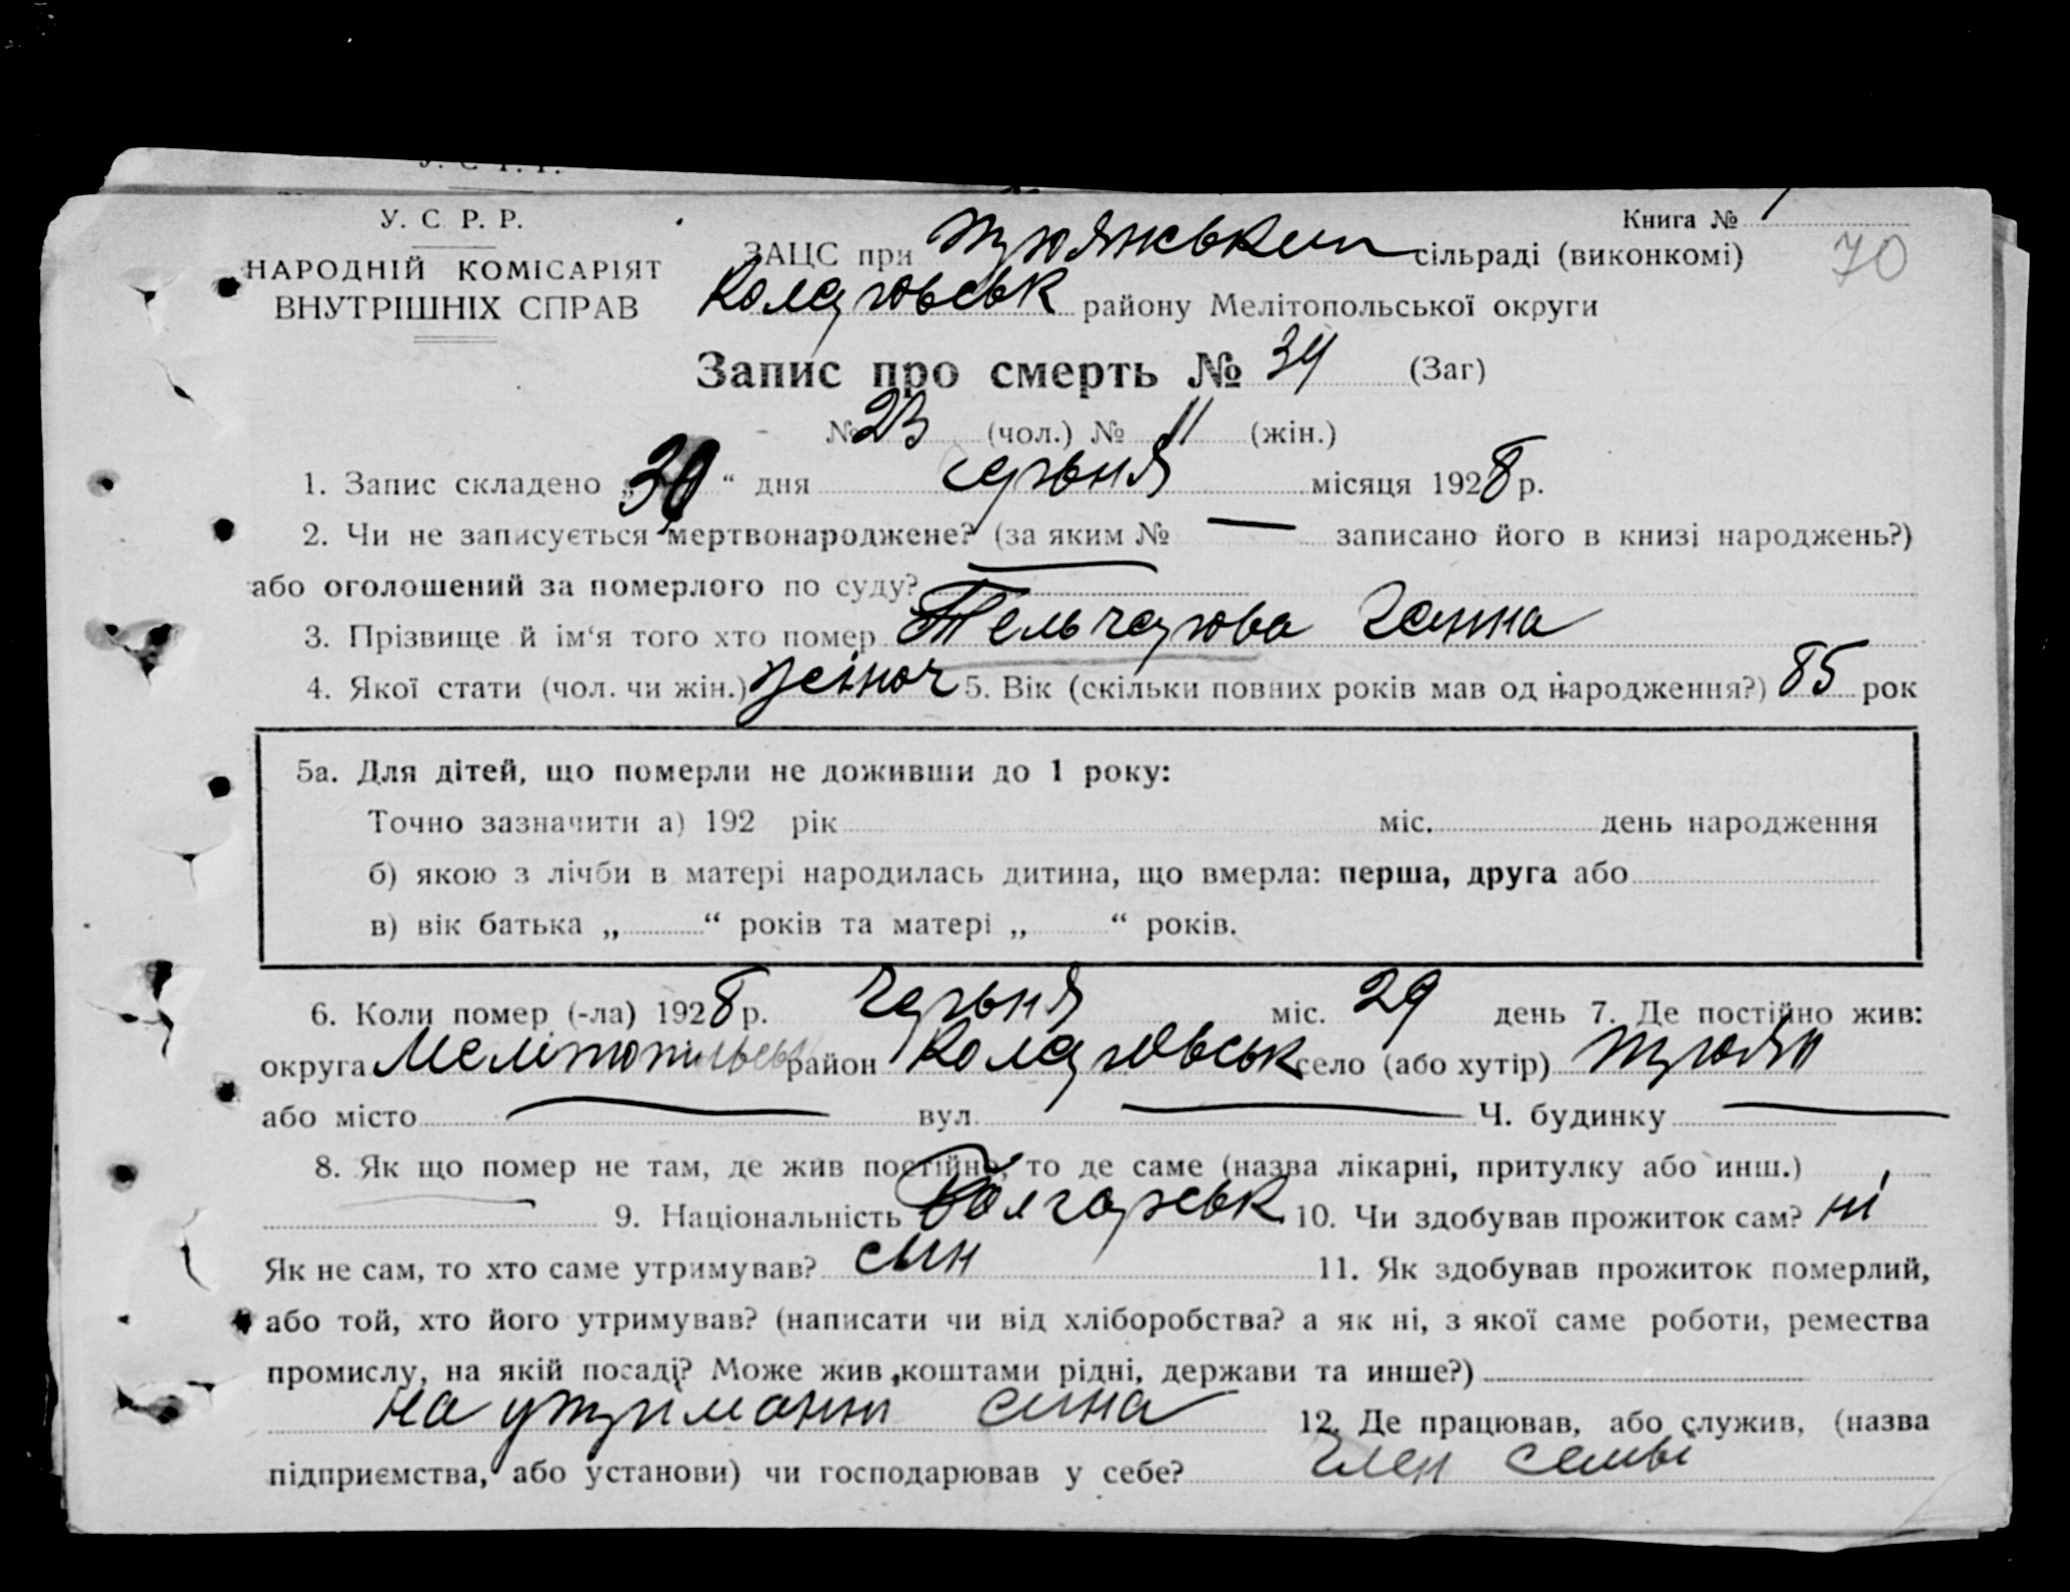 У. С. Р. Р.
Книга № 1
НАРОДНІЙ КОМІСАРІЯТ
ВНУТРІШНІХ СПРАВ
70
ЗАЦС при сільраді (виконкомі)
району Мелітопольської округи
Запис про смерть № 34 (Заг)
№ 23 (чол.) № 11 (жін.)
1. Запис складено „30“ дня серпня місяця 1928 р.
2. Чи не записується мертвонароджене? (за яким № — записано його в книзі народжень?)
або оголошений за померлого по суду? —
3. Прізвище й ім'я того хто помер Ганна
4. Якої стати (чол. чи жін.) жіноч 5. Вік (скільки повних років мав од народження?) 85 рок
5а. Для дітей, що померли не доживши до 1 року:
Точно зазначити а) 192 рік міс. день народження
б) якою з лічби в матері народилась дитина, що вмерла: перша, друга або
в) вік батька „ “ років та матері „ “ років.
6. Коли помер (-ла) 1928 р. міс. 29 день 7. Де постійно жив:
округа Мелітопільськ район село (або хутір)
або місто — вул. — Ч. будинку —
8. Як що помер не там, де жив постійно, то де саме (назва лікарні, притулку або инш.)
— 9. Національність Болгарськ 10. Чи здобував прожиток сам? ні
Як не сам, то хто саме утримував? син 11. Як здобував прожиток померлий,
або той, хто його утримував? (написати чи від хліборобства? а як ні, з якої саме роботи, ремества
промислу, на якій посаді? Може жив коштами рідні, держави та инше?)
на утриманні сина 12. Де працював, або служив, (назва
підприємства, або установи) чи господарював у себе? член семьі